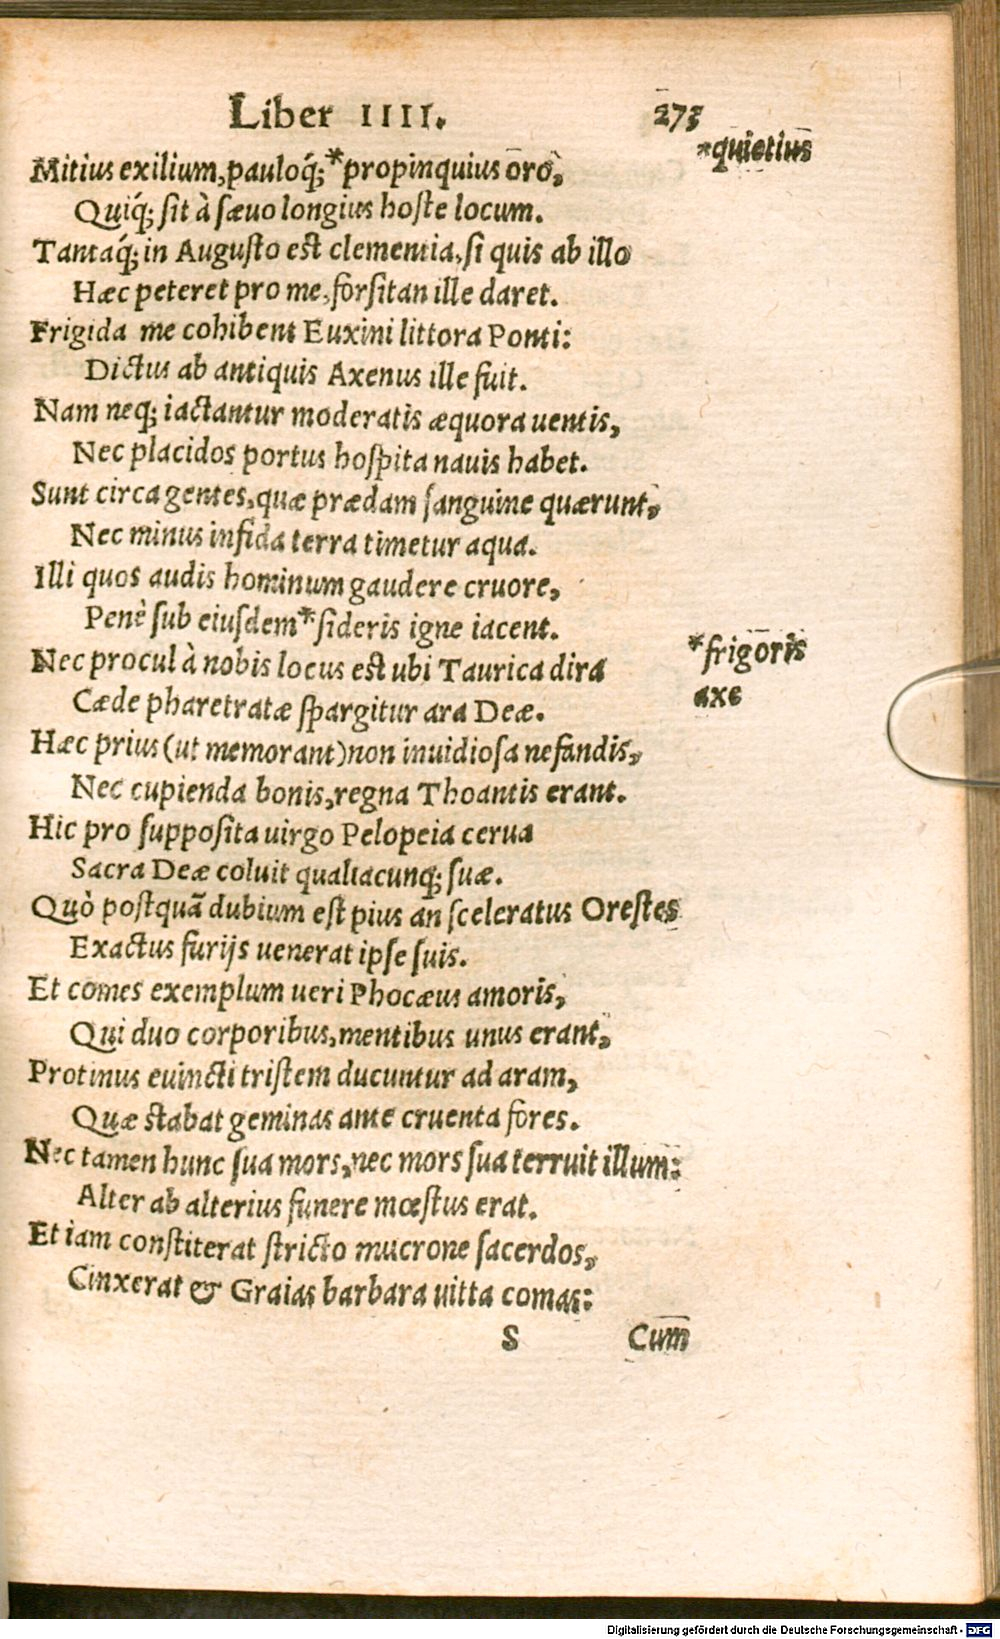 Liber IIII. 273
*quietius
Mitius exilium, pauloq́; *propinquius oro,
Quiq́; sit à sæuo longius hoste locum.
Tantaq́; in Augusto est clementia, si quis ab illo
Hæc peteret pro me, forsitan ille daret.
Frigida me cohibent Euxini littora Ponti:
Dictus ab antiquis Axenus ille fuit.
Nam neq; iactantur moderatis æquora uentis,
Nec placidos portus hospita nauis habet.
Sunt circa gentes, quæ prædam sanguine quærunt,
Nec minus infida terra timetur aqua.
Illi quos audis hominum gaudere cruore,
Penè sub eiusdem *sideris igne iacent.
*frigoris
axe
Nec procul à nobis locus est ubi Taurica dira
Cæde pharetratæ spargitur ara Deæ.
Hæc prius (ut memorant) non inuidiosa nefandis,
Nec cupienda bonis, regna Thoantis erant.
Hic pro supposita uirgo Pelopeia cerua
Sacra Deæ coluit qualiacunq; suæ.
Quò postquã dubium est pius an sceleratus Orestes
Exactus furijs uenerat ipse suis.
Et comes exemplum ueri Phocæus amoris,
Qui duo corporibus, mentibus unus erant,
Protinus euincti tristem ducuntur ad aram,
Quæ stabat geminas ante cruenta fores.
Nec tamen hunc sua mors, nec mors sua terruit illum:
Alter ab alterius funere mœstus erat.
Et iam constiterat stricto mucrone sacerdos,
Cinxerat & Graias barbara uitta comas:
S Cum
Digitalisierung gefördert durch die Deutsche Forschungsgemeinschaft - DFG